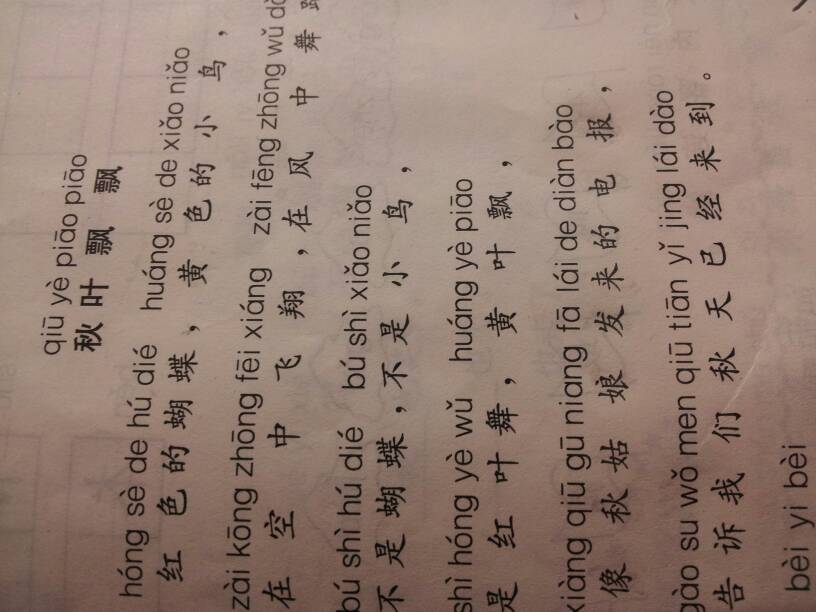 qiū yè piāo piāo
秋叶飘飘
hóng sè de hú dié huáng sè de xiǎo niǎo
红色的蝴蝶，黄色的小鸟，
zài kōng zhōng fēi xiáng zài fēng zhōng wǔ
在空中飞翔，在风中舞
bú shì hú dié bú shì xiǎo niǎo
不是蝴蝶，不是小鸟，
shì hóng yè wǔ huáng yè piāo
是红叶舞，黄叶飘，
xiàng qiū gū niang fā lái de diàn bào
像秋姑娘发来的电报，
gào su wǒ men qiū tiān yǐ jing lái dào
告诉我们秋天已经来到。
bèi yi bèi